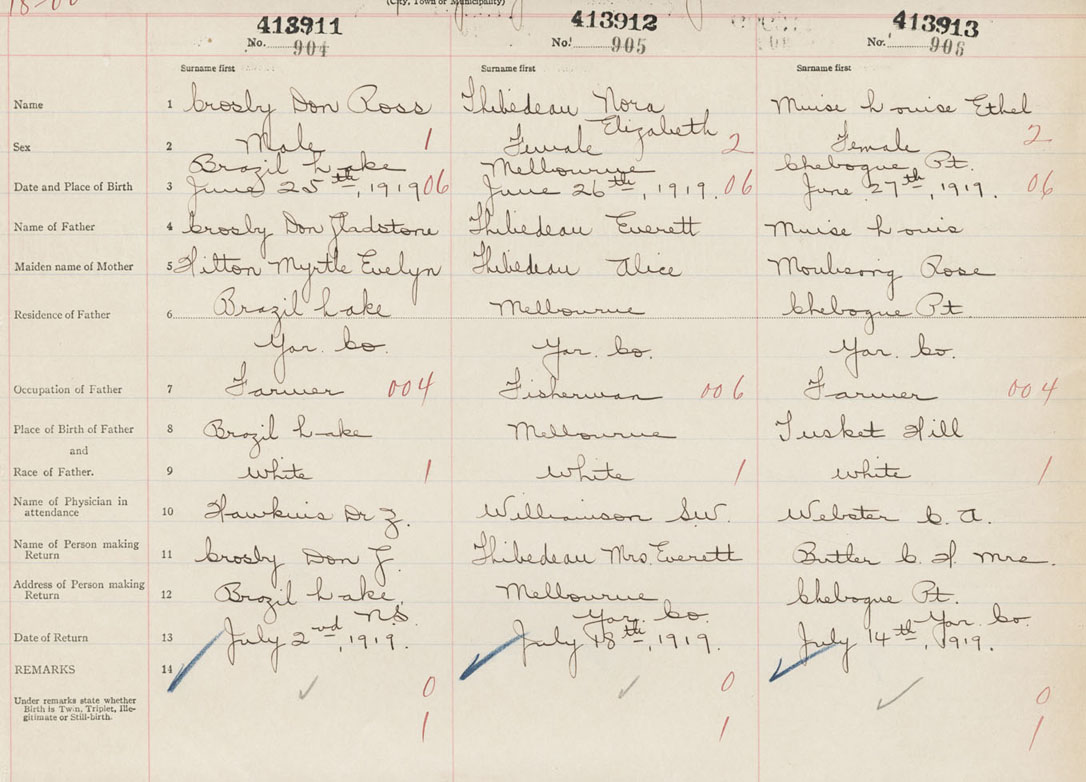 (City, Town or Municipality)
413911 413912 413913
No. 904 No. 905 No. 906
Surname first Surname first Surname first
Name 1 Crosby Don Ross Thibedeau Nora Elizabeth Muise Louise Ethel
Sex 2 Male 1 Female 2 Female 2
Brazil Lake Melbourne Chebogue Pt.
Date and Place of Birth 3 June 25th, 1919 06 June 26th, 1919. 06 June 27th, 1919. 06
Name of Father 4 Crosby Don Gladstone Thibedeau Everett Muise Louis
Maiden name of Mother 5 Hilton Myrtle Evelyn Thibedeau Alice Rose
Residence of Father 6 Brazil Lake Melbourne Chebogue Pt.
Yar. Co. Yar. Co. Yar. Co.
Occupation of Father 7 Farmer 004 Fisherman 006 Farmer 004
Place of Birth of Father 8 Brazil Lake Melbourne Tusket Hill
and
Race of Father. 9 White 1 White 1 White 1
Name of Physician in attendance 10 Hawkins Dr Z. Williamson S.W. Webster C. A.
Name of Person making Return 11 Crosby Don G. Thibedeau Mrs. Everett Butler C. H. Mrs.
Address of Person making Return 12 Brazil Lake, N.S. Melbourne Yar. Co. Chebogue Pt. Yar. Co.
Date of Return 13 July 2nd, 1919. July 18th, 1919. July 14th, 1919.
REMARKS 14
0 0 0
Under remarks state whether
Birth is Twin, Triplet, Ille-
gitimate or Still-birth.
1 1 1